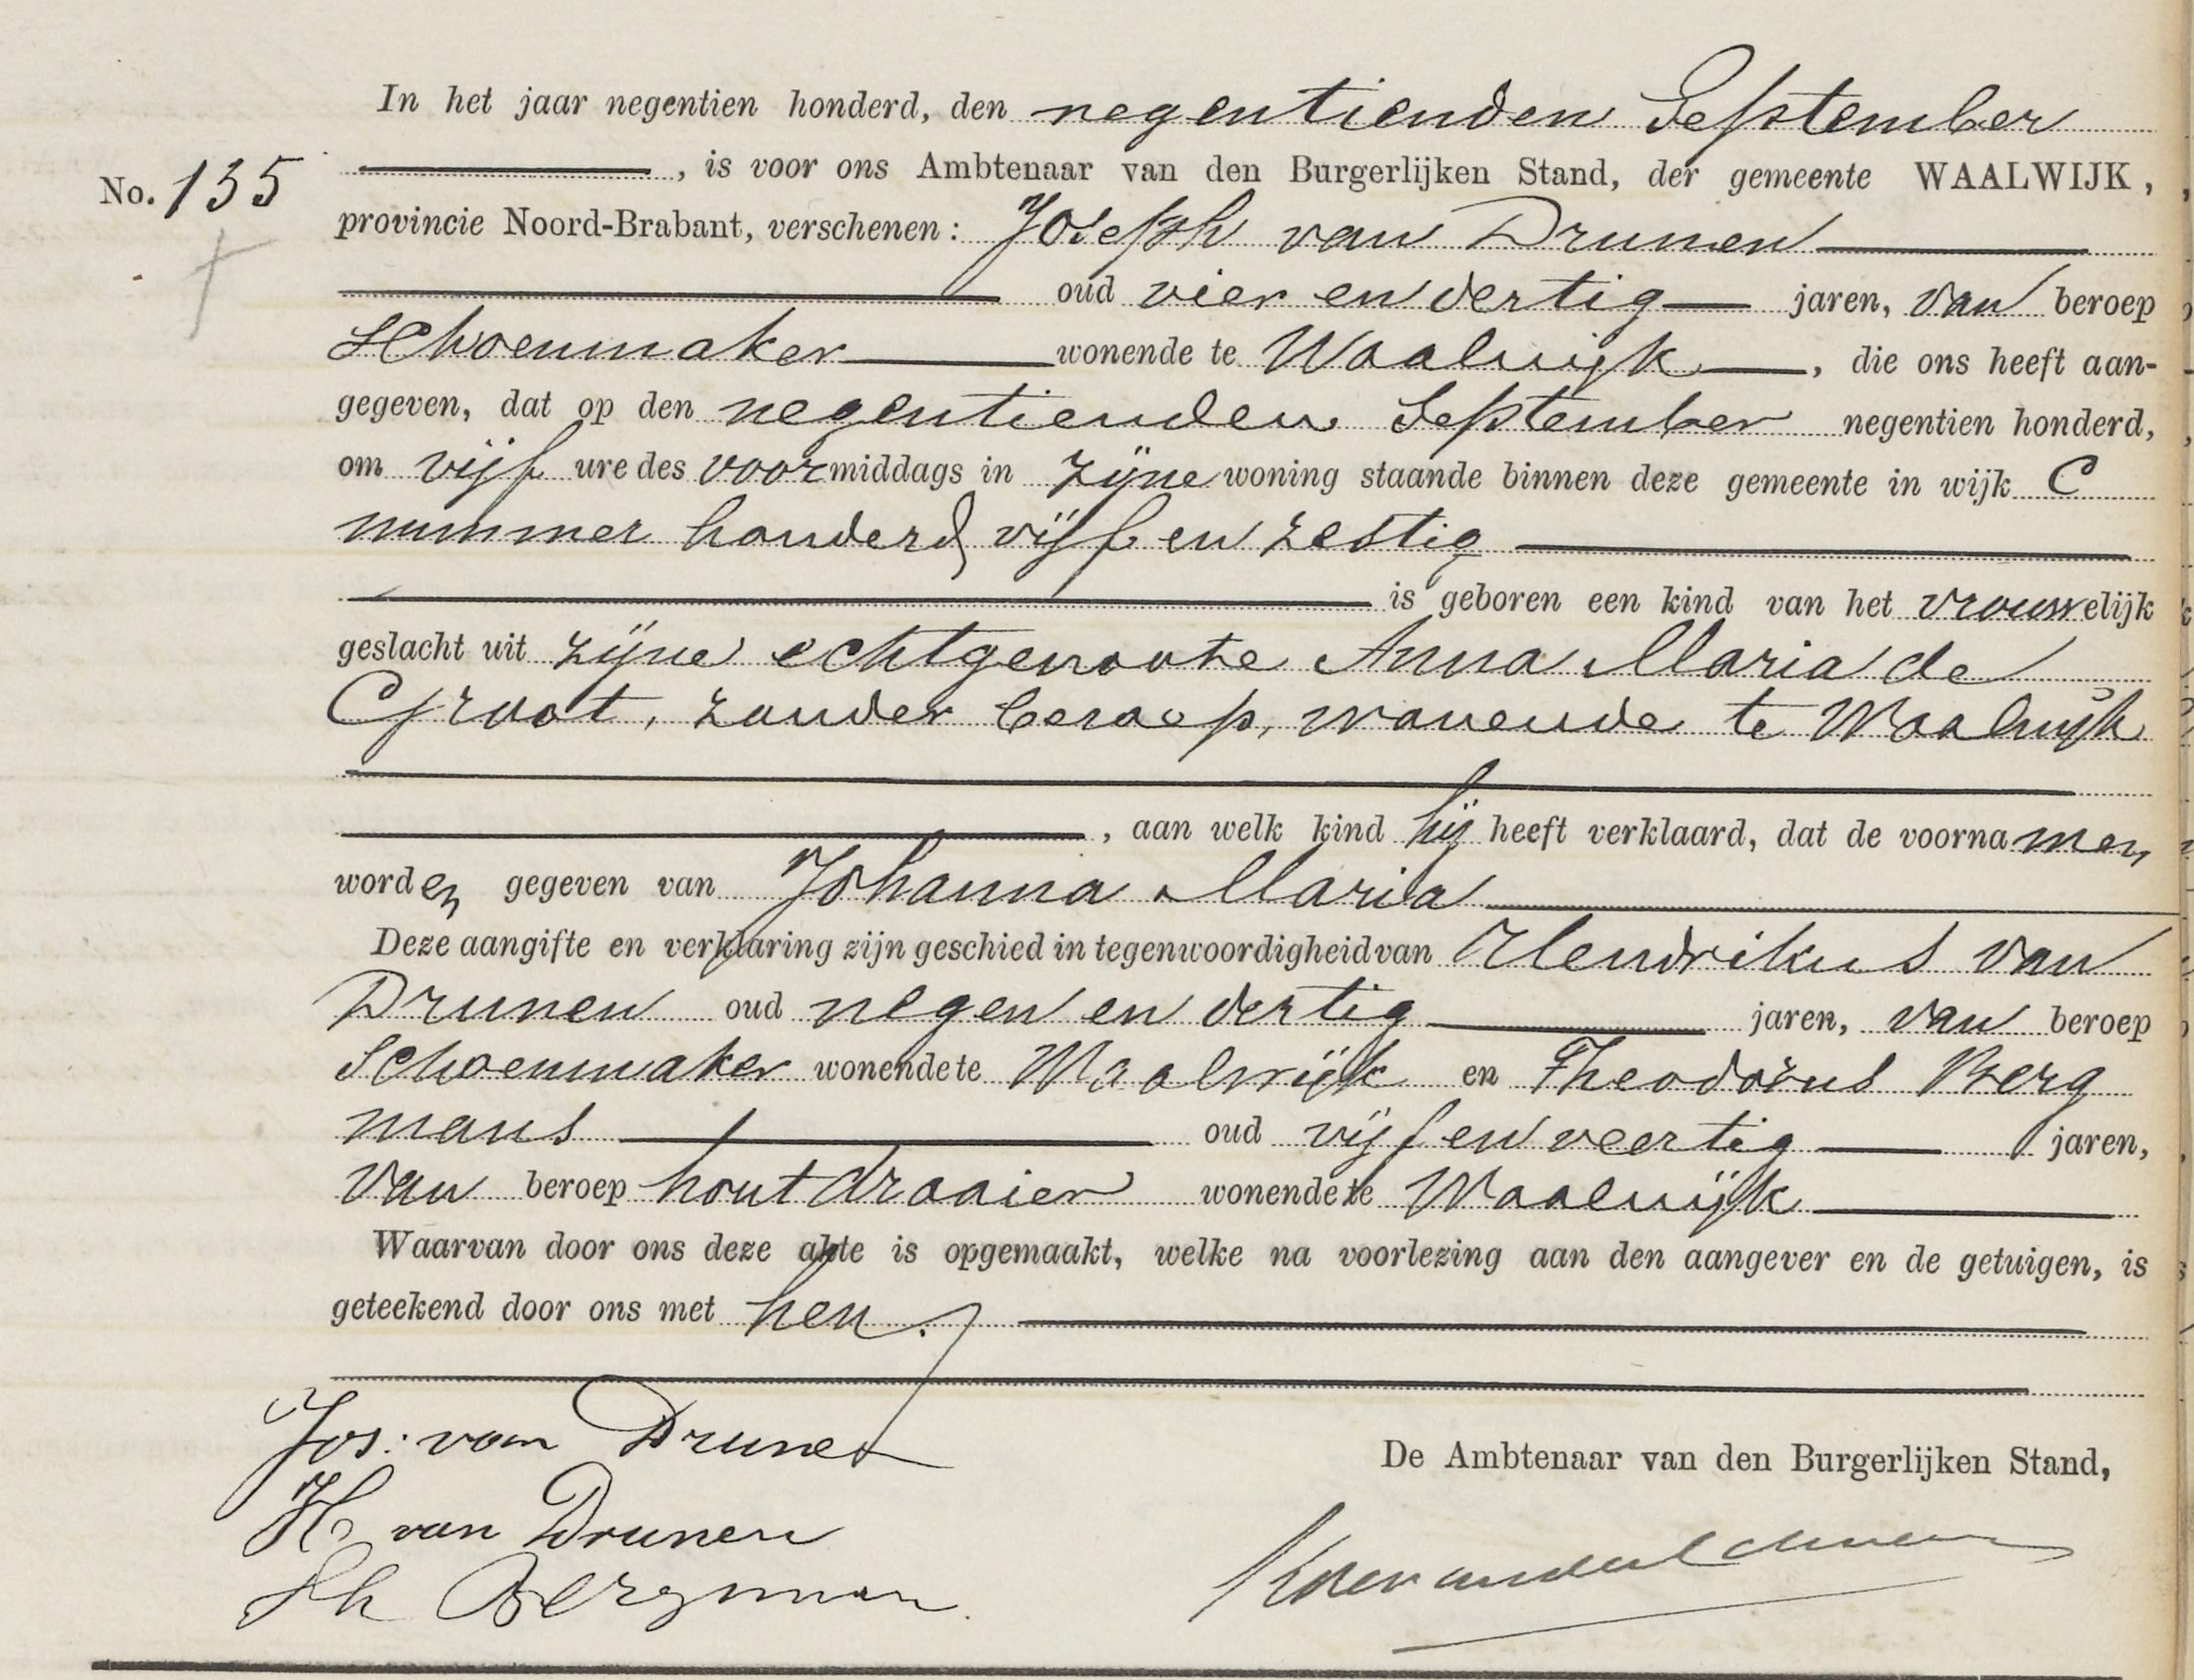 In het jaar negentien honderd, den negentienden September
No. 135
, is voor ons Ambtenaar van den Burgerlijken Stand, der gemeente WAALWIJK,
provincie Noord-Brabant, verschenen: Joseph van Drunen
oud vier en dertig jaren, van beroep
Schoenmaker wonende te Waalwijk, die ons heeft aan-
gegeven, dat op den negentienden September negentien honderd,
om vijf ure des voormiddags in zijne woning staande binnen deze gemeente in wijk C
nummer honderd vijf en zestig
is geboren een kind van het vrouwelijk
geslacht uit zijne echtgenoote Anna Maria de
Groot, zonder beroep, wonende te Waalwijk
, aan welk kind hij heeft verklaard, dat de voornamen
worden gegeven van Johanna Maria
Deze aangifte en verklaring zijn geschied in tegenwoordigheid van Hendrikus van
Drunen oud negen en dertig jaren, van beroep
Schoenmaker wonende te Waalwijk en Theodorus Berg
mans oud vijf en veertig jaren,
van beroep houtdraaier wonende te Waalwijk
Waarvan door ons deze akte is opgemaakt, welke na voorlezing aan den aangever en de getuigen, is
geteekend door ons met hen.
Jos: van Drunen
De Ambtenaar van den Burgerlijken Stand,
H. van Drunen
Th Bergman